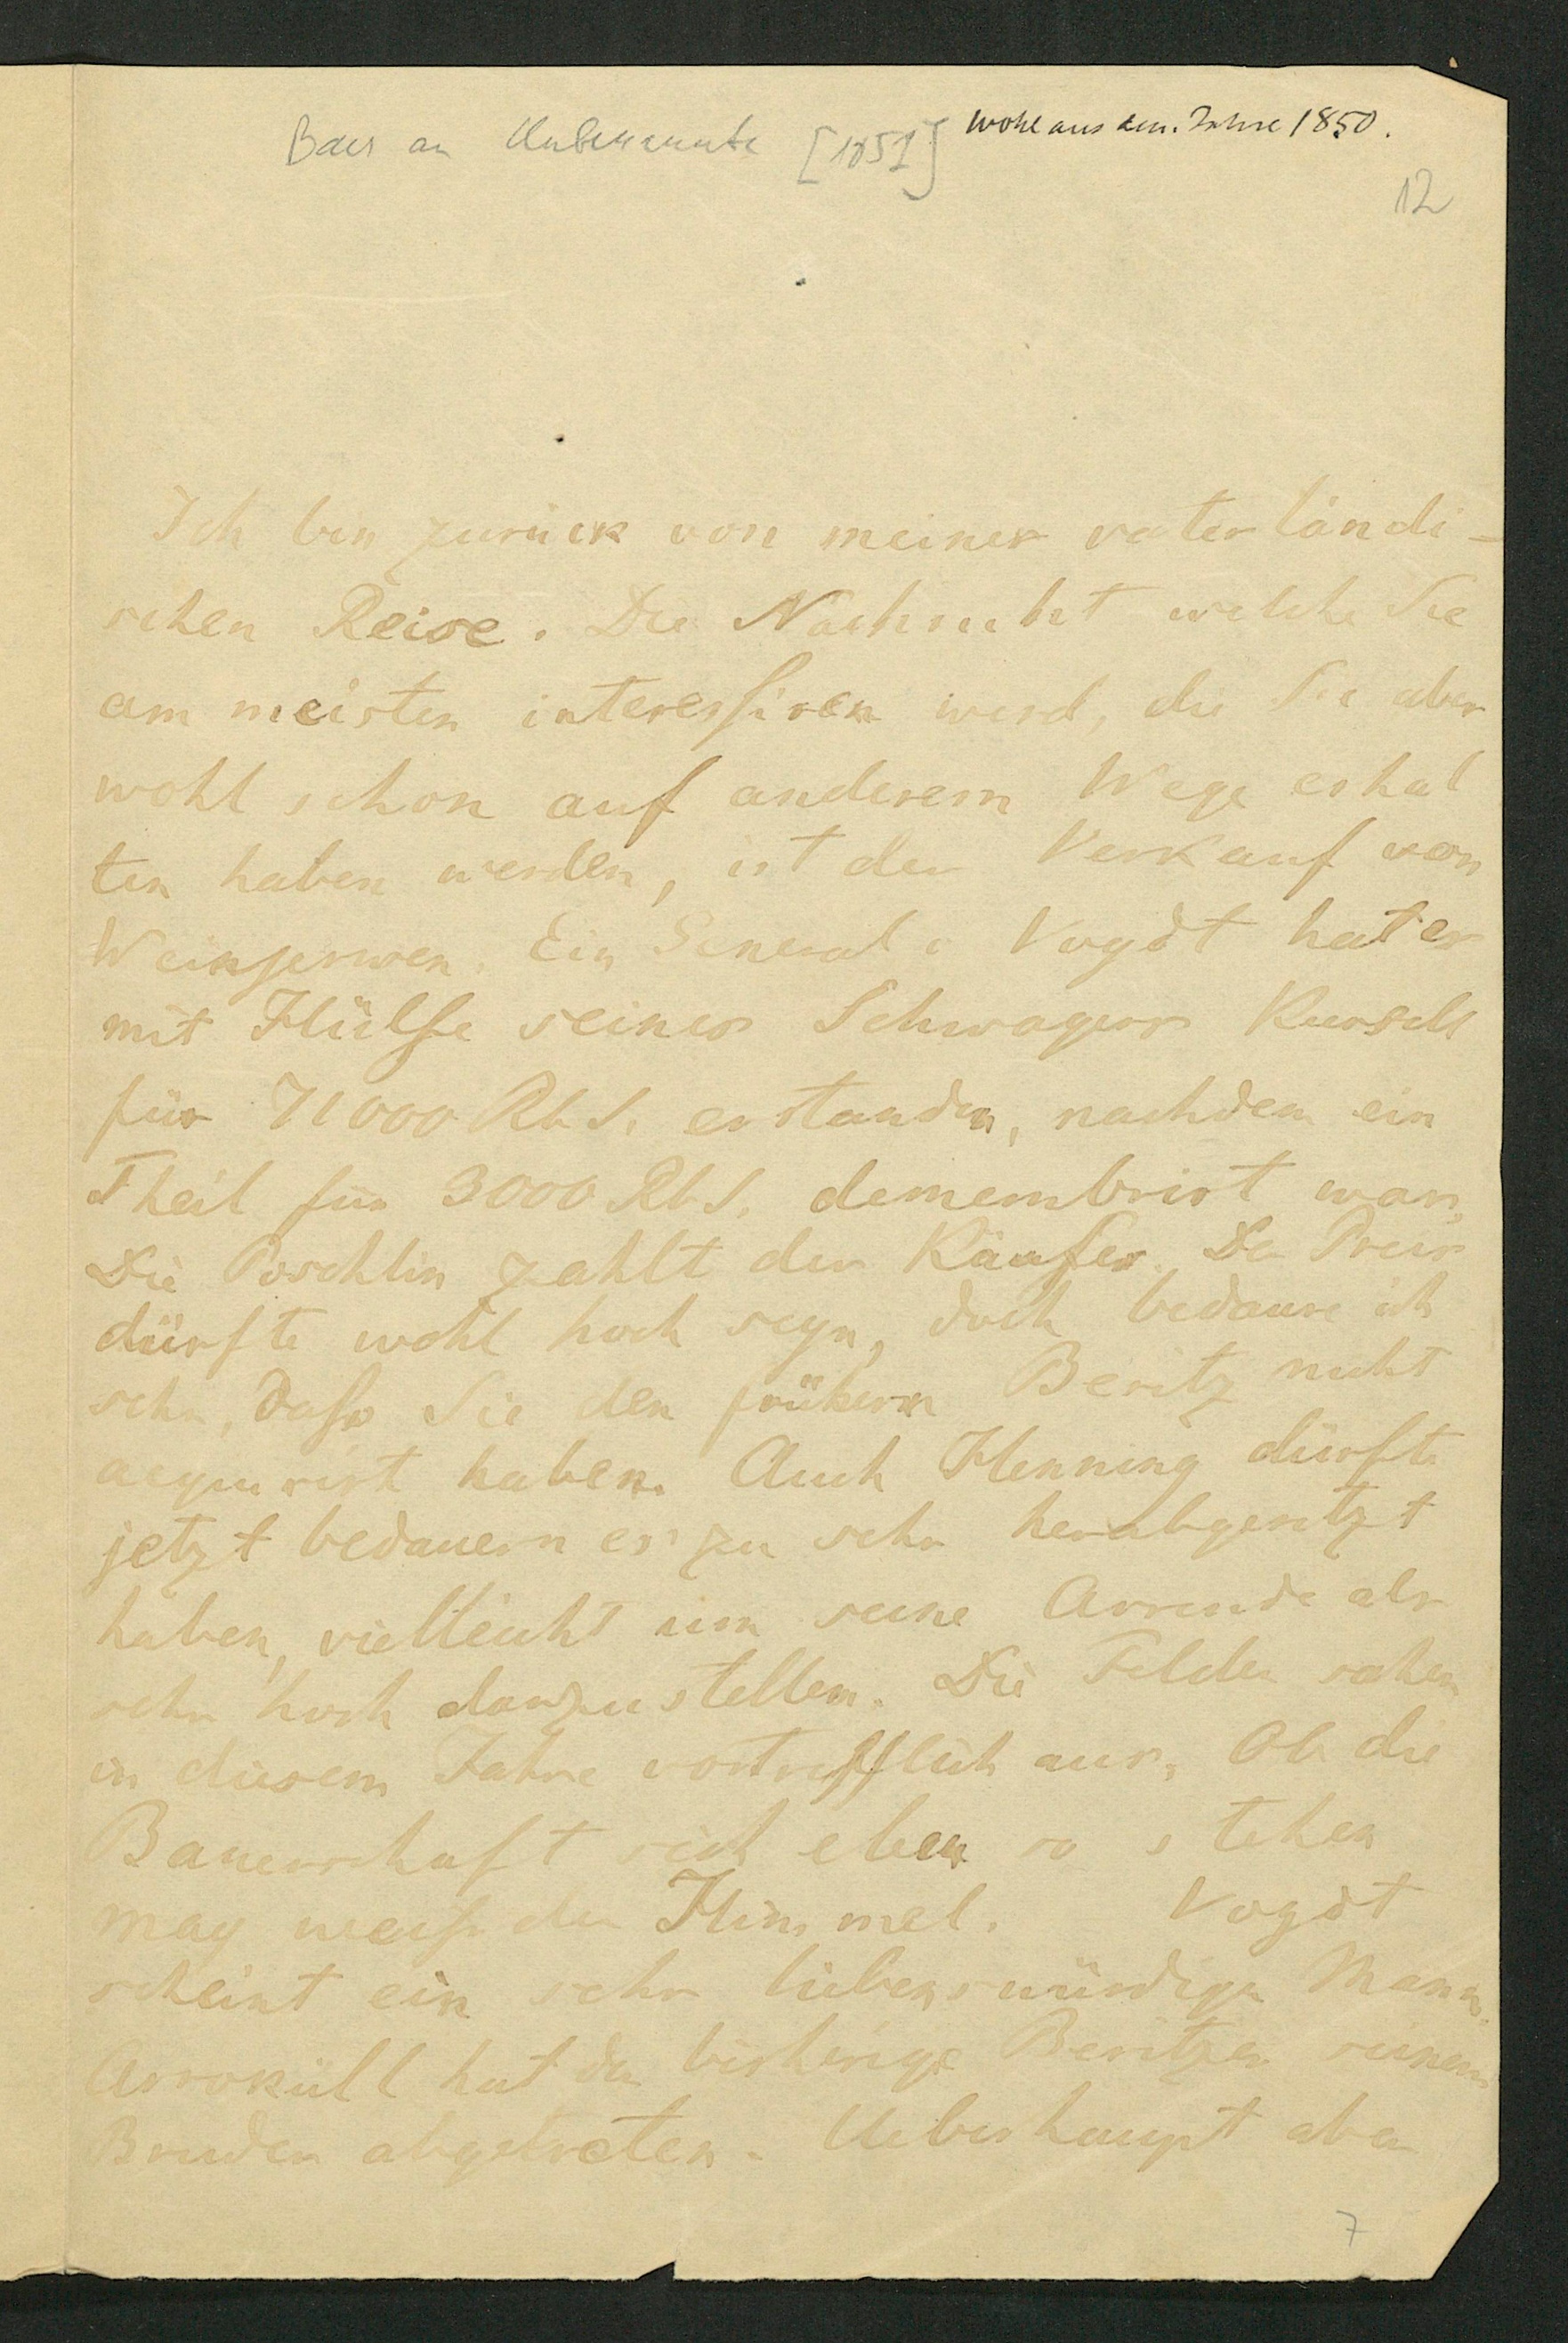 Baer an Unbekannte [1851] wohl aus dem Jahre 1850.
12
Ich bin zurück von meiner vaterländi-
schen Reise. Die Nachricht welche Sie
am meisten interessiren wird, die Sie aber
wohl schon auf anderem Wege erhal
ten haben werden, ist der Verkauf von
Weinjerwen. Ein General v Vogdt hat es
mit Hülfe seines Schwagers Kursell
für 71000 Rb S. erstanden, nachdem ein
Theil für 3000 Rb S. demembrirt war,
Die Poschlin zahlt der Käufer. Der Preis
dürfte wohl hoch seyn, doch bedaure ich
sehr, dass Sie den frühern Besitz nicht
acquirirt haben. Auch Henning dürfte
jetzt bedauern es zu sehr herabgesetzt
haben, vielleicht um seine Arrende als
sehr hoch darzustellen. Die Felder sahen
in diesem Jahre vortrefflich aus, Ob die
Bauerschaft sich eben so stehen
mag weiss der Himmel. Vogdt
scheint ein sehr liebenswürdiger Mann.
Arroküll hat der bisherige Besitzer seinem
Bruder abgetreten. Ueberhaupt aber
7